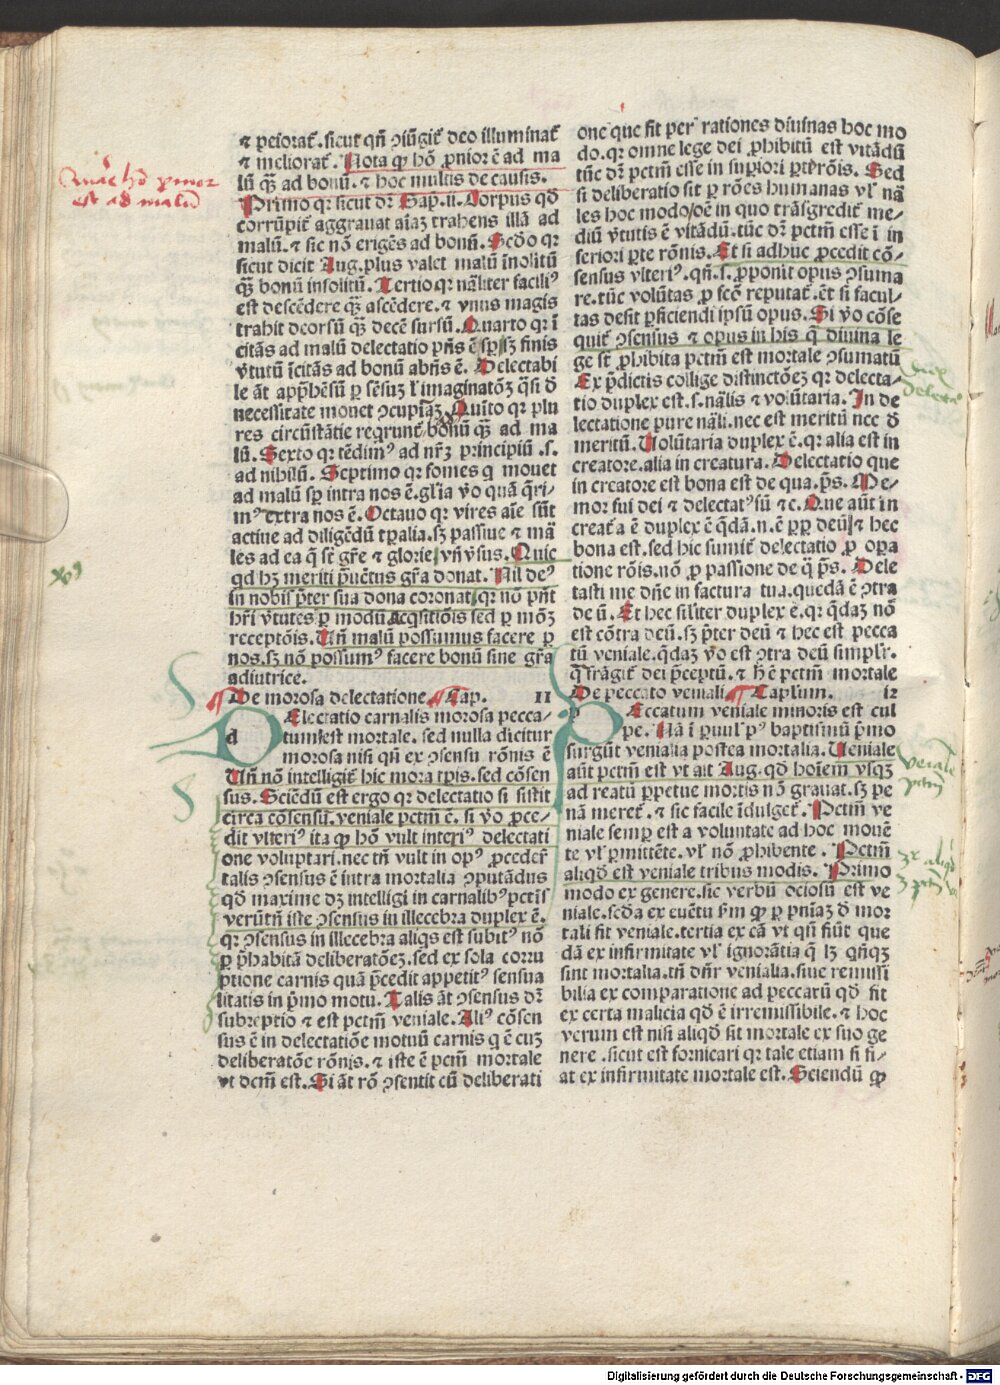 ⁊ peiorat᷑. sicut qn̄ ↄiūgit᷑ deo illuminat᷑
⁊ meliorat᷑. Nota ꝙ hō ꝓnior ē ad ma
lū qꝫ̄ ad bonū. ⁊ hoc multis de causis.
Primo qꝛ sicut dꝛ̄ Sap. ii. Corpus qd̄
corrūpit᷑ aggrauat aīaꝫ trahens illā ad
malū. ⁊ sic nō erigēs ad bonū. Secd̄o qꝛ
sicut dicit Aug. plus valet malū īnolitū
qꝫ̄ bonū insolitū. Tertio qꝛ nāliter faciliꝰ
est descēdere qꝫ̄ ascēdere. ⁊ vnus magis
trahit deorsū qꝫ̄ decē sursū. Quarto qꝛ ī
citās ad malū delectatio p̄ns ē sp̄ sꝫ finis
v̄tutū īcitās ad bonū abn̄s ē. Delectabi
le āt app̄hēsū ꝑ sēsuꝫ l᷑ imaginatōꝫ q̄si d̄
necessitate mouet ↄcupīaꝫ. Quīto qꝛ plu
res circūstātie reqrunt᷑ ad bonū qꝫ̄ ad ma
lū. Sexto qꝛ tēdimꝰ ad nr̄ꝫ principiū .s.
ad nihilū. Septimo qꝛ fomes q mouet
ad malū sp̄ intra nos ē. gl̄ia v̄o quā q̄ri-
mꝰ extra nos ē. Octauo qꝛ vires aīe sūt
actiue ad diligēdū tp̄alia. sꝫ passiue ⁊ mā
les ad ea q̄ st̄ gr̄e ⁊ glorie. vn̄ v̄sus. Quic
qd hꝫ meriti p̄uētus gr̄a donat. Nil deꝰ
in nobis p̄ter sua dona coronat. qꝛ nō pn̄t
hr̄i v̄tutes ꝑ modū acq̄sitiōis sed ꝑ moꝫ
receptōis. Un̄ malū possumus facere ꝑ
nos. sꝫ nō possumꝰ facere bonū sine gr̄a
adiutrice.
¶ De morosa delectatione ¶ Cap. II
d Electatio carnalis morosa pecca-
tum est mortale. sed nulla dicitur
morosa nisi qn̄ ex ↄsensu rōnis ē
Un̄ nō intelligit᷑ hic mora tp̄is. sed cōsen
sus. Sciēdū est ergo qꝛ delectatio si sistit
circa cōsensū. veniale pctm̄ ē. si v̄o ꝓce-
dit vlteriꝰ ita ꝙ hō vult interiꝰ delectati
one voluptari. nec tn̄ vult in opꝰ ꝓceder᷑
talis ↄsensus ē intra mortalia ↄputādus
qd̄ maxime dꝫ intelligi in carnalibꝰ pctīs
verūtn̄ iste ↄsensus in illecebra duplex ē.
qꝛ ↄsensus in illecebra aliqs est subitꝰ nō
ꝑ p̄habitā deliberatōeꝫ. sed ex sola corru
ptione carnis quā p̄cedit appetitꝰ sensua
litatis in p̄mo motu. Talis āt ↄsensus dꝛ̄
subreptio ⁊ est pctm̄ veniale. Aliꝰ cōsen
sus ē in delectatiōe motuū carnis q ē cuꝫ
deliberatōe rōnis. ⁊ iste ē pctm̄ mortale
vt dcm̄ est. Si āt rō ↄsentit cū deliberati
one que fit per rationes diuinas hoc mo
do. qꝛ omne lege dei ꝓhibitū est vitādū
tūc dꝛ̄ pctm̄ esse in suꝑiori ꝑte rōis. Sed
si deliberatio sit ꝑ rōes humanas vl᷑ nā
les hoc modo. oē in quo trāsgredit᷑ me-
diū v̄tutis ē vitādū. tūc dꝛ̄ pctm̄ esse ī in
feriori ꝑte rōnis. Et si adhuc ꝓcedit cō-
sensus vlteriꝰ. qn̄ .s. ꝓponit opus ↄsuma
re. tūc volūtas ꝓ fcō reputat᷑. ēt si facul-
tas desit ꝑficiendi ipsū opus. Si v̄o cōse
quit᷑ ↄsensus ⁊ opus in his q̄ diuina le
ge st̄ ꝓhibita pctm̄ est mortale ↄsumatū
Ex p̄dictis collige distinctōeꝫ qꝛ delecta-
tio duplex est .s. nālis ⁊ volūtaria. In de
lectatione pure nāli. nec est meritū nec d̄
meritū. Uolūtaria duplex ē. qꝛ alia est in
creatore. alia in creatura. Delectatio que
in creatore est bona est de qua. p̄s. Me-
mor fui dei ⁊ delectatꝰ sū ⁊ c. Que aūt in
creat᷑a ē duplex ē q̄dā .n. ē ꝓp̄ deū. ⁊ hec
bona est. sed hic sumit᷑ delectatio ꝓ oꝑa
tione rōis. nō ꝓ passione de q̄ p̄s. Dele
tasti me dn̄e in factura tua. quedā ē ↄtra
de ū. Et hec sil̄iter duplex ē. qꝛ q̄daꝫ nō
est cōtra deū. sꝫ p̄ter deū ⁊ hec est pecca
tū veniale. q̄daꝫ v̄o est ↄtra deū simpl᷑r.
q̄ frāgit᷑ dei p̄ceptū. ⁊ h̄ ē pctm̄ mortale
De peccato veniali ¶ Capl̄um. 12
p Eccatum veniale minoris est cul
pe. Nā ī ꝑuul᷑ pꝰ baptismū p̄mo
surgūt venialia postea mortalia. Ueniale
aūt pctm̄ est vt ait Aug. qd̄ hoīem vsqꝫ
ad reatū ꝑpetue mortis nō grauat. sꝫ pe
nā meret᷑. ⁊ sic facile īdulget᷑. Pctm̄ ve
niale semꝑ est a voluntate ad hoc mouē
te vl᷑ ꝑmittēte. vl᷑ nō ꝓhibente. Pctm̄
aliqd̄ est veniale tribus modis. Primo
modo ex genere. sic verbū ociosū est ve
niale. secd̄a ex euētu s̄m ꝙ ꝑ pn̄iaꝫ d̄ mor
tali fit veniale. tertia ex cā vt qn̄ fiūt que
dā ex infirmitate vl᷑ ignorātia q̄ lꝫ qn̄qꝫ
sint mortalia. tn̄ dn̄r venialia. siue remissi
bilia ex comparatione ad peccatū qd̄ fit
ex certa malicia qd̄ ē irremissibile. ⁊ hoc
verum est nisi aliqd̄ sit mortale ex suo ge
nere. sicut est fornicari qꝛ tale etiam si fi-
at ex infirmitate mortale est. Sciendū ꝙ
Quare hō pronior
est ad malum
duplex
delectatō
veniale
pctm̄
Digitalisierung gefördert durch die Deutsche Forschungsgemeinschaft - DFG